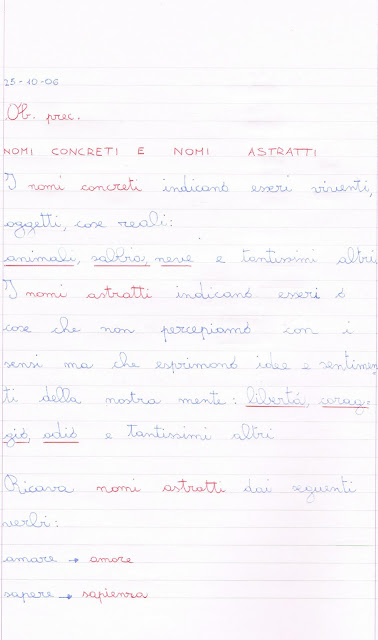 25-10-06
Ob. prec.
NOMI CONCRETI E NOMI ASTRATTI
I nomi concreti indicano esseri viventi,
oggetti, cose reali:
animali, sabbia, neve e tantissimi altri
I nomi astratti indicano esseri o
cose che non percepiamo con i
sensi ma che esprimono idee e sentimen
ti della nostra mente: libertà, corag-
gio, odio e tantissimi altri
Ricava nomi astratti dai seguenti
verbi:
amare → amore
sapere → sapienza